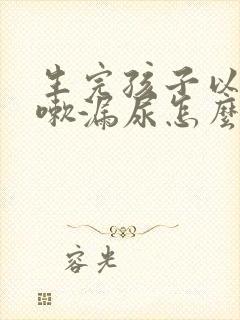 生完孩子以
嗽-漏尿怎麼
容光